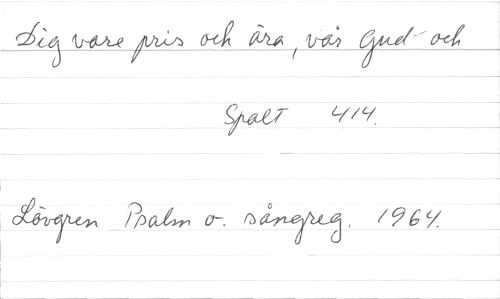 Dig vare pris och ära, vår Gud och
Spalt 414.
Lövgren Psalm o. sångreg. 1964.